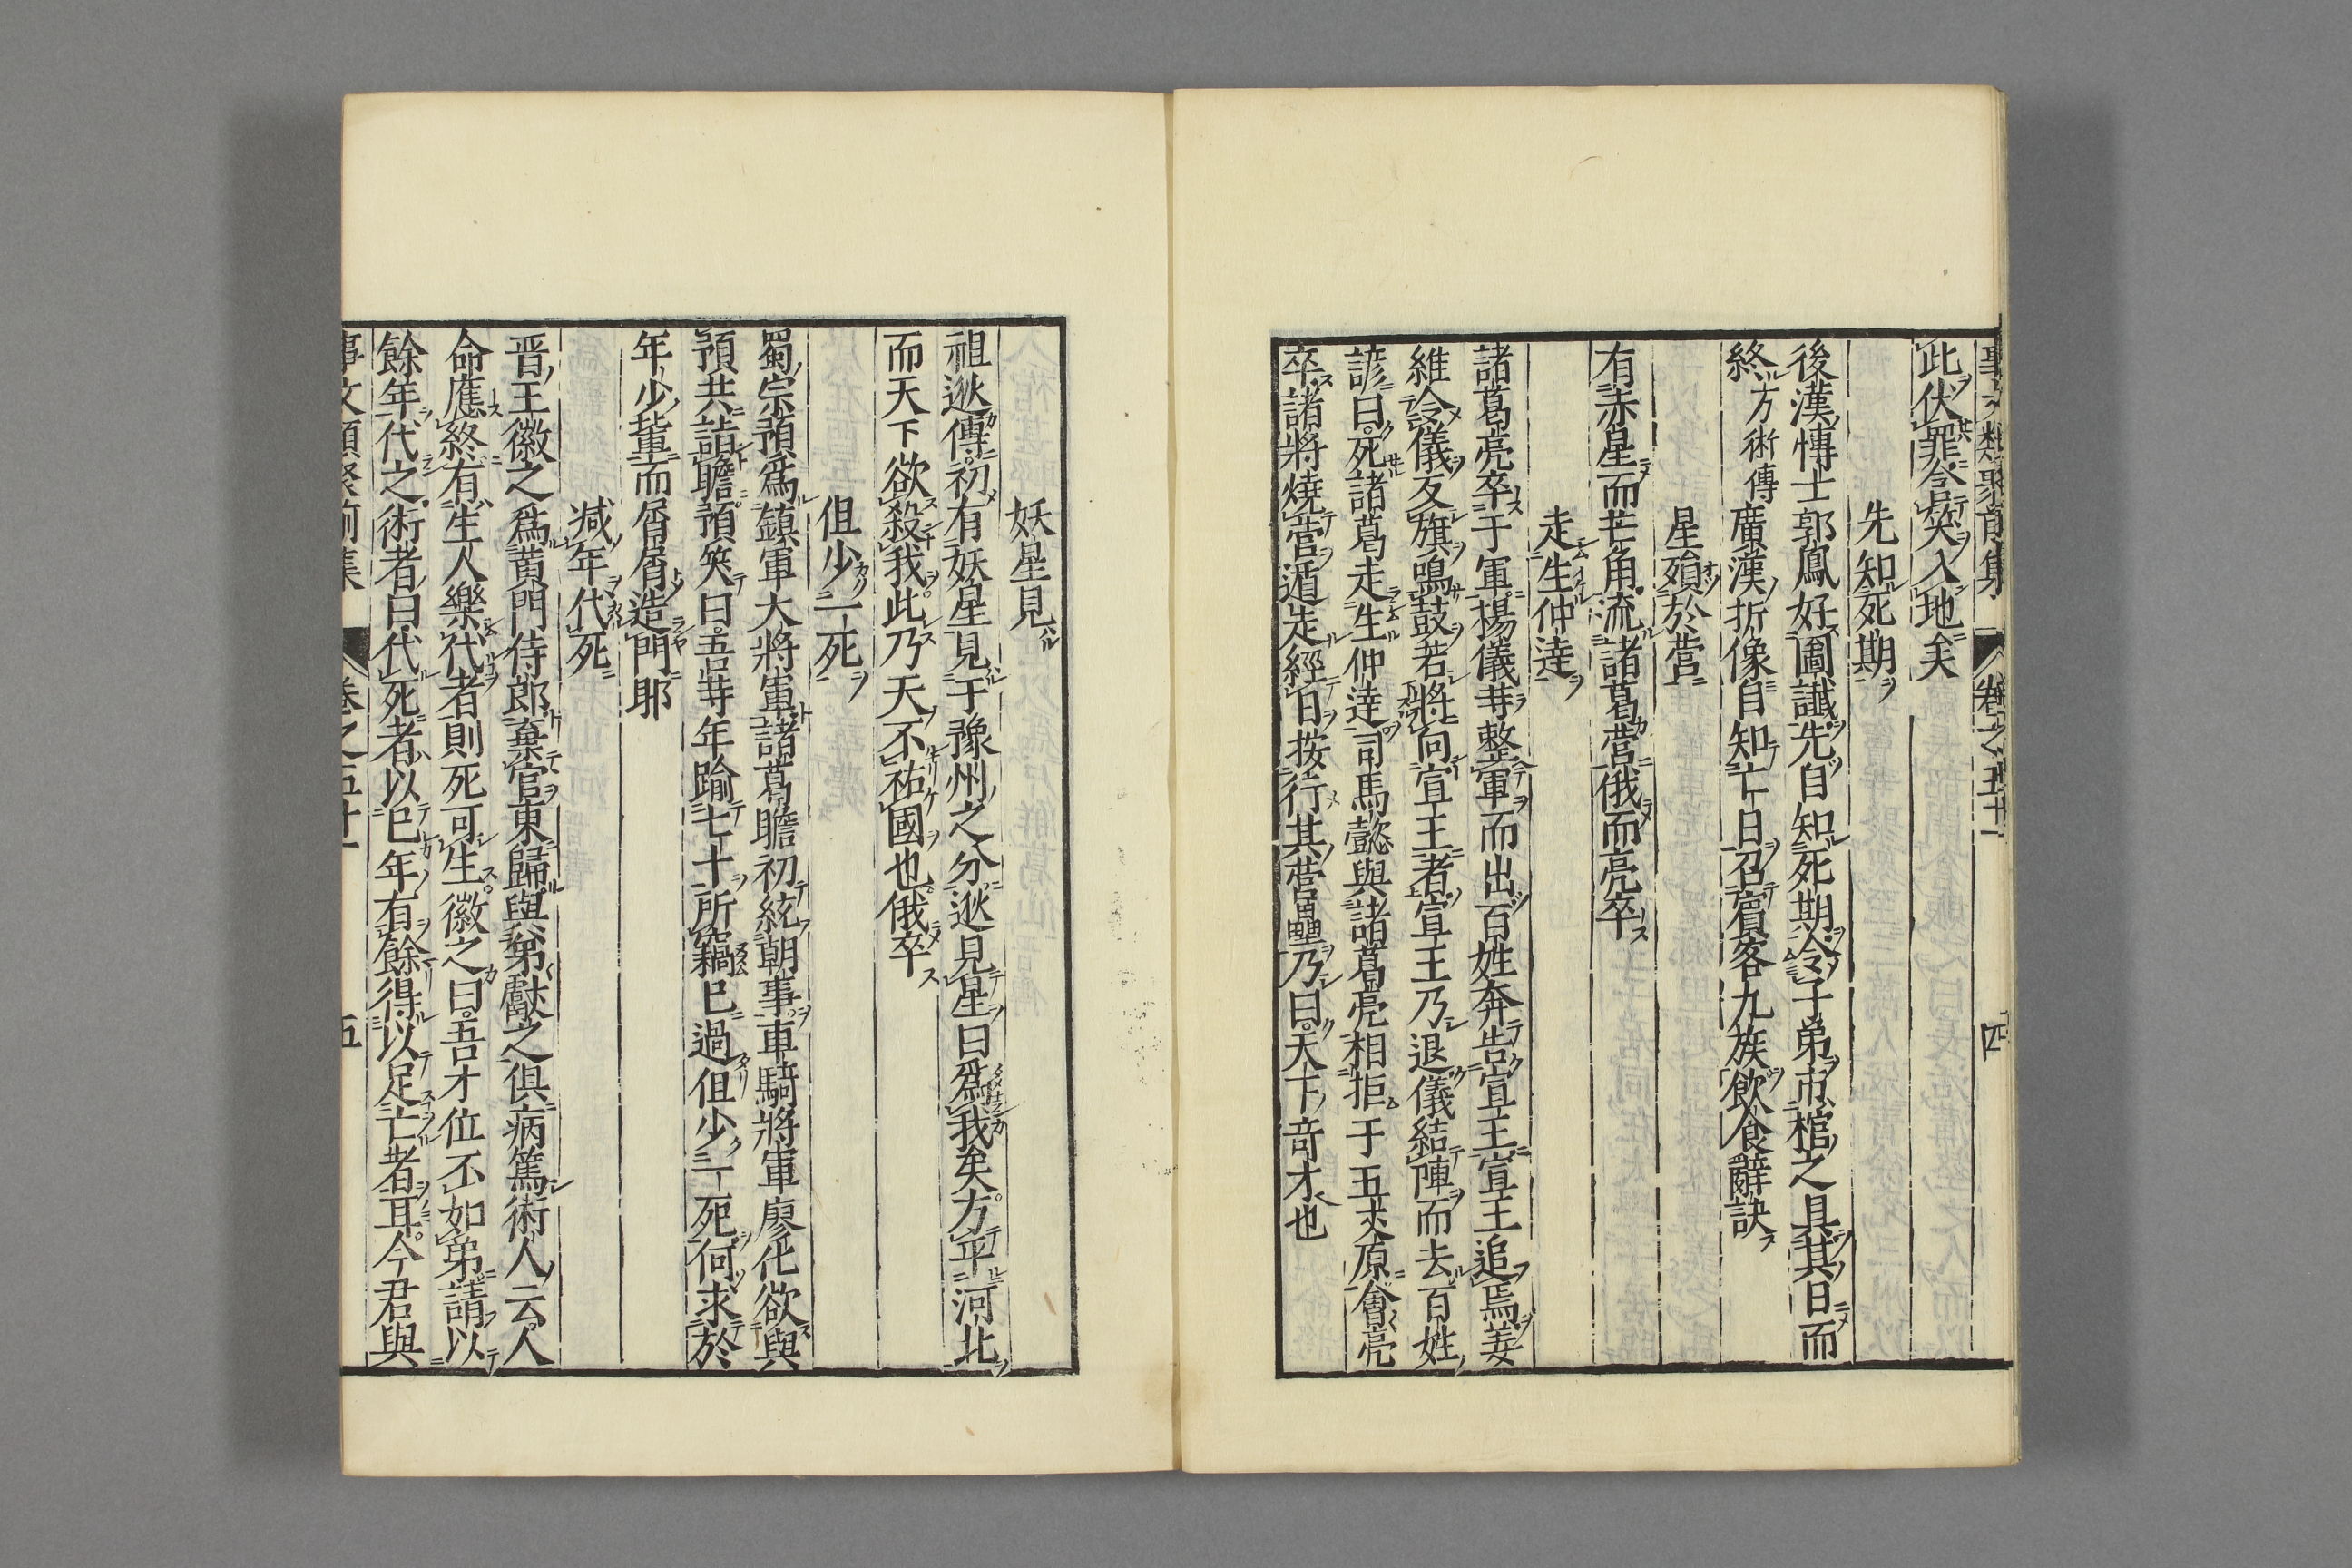 事文類聚前集 卷之五十一 四
此伏罪今含笑入地矣
先知死期
後漢博士郭鳳好圖讖先自知死期令子弟市棺之具其日而
終方術傳廣漢折像自知亡日召賓客九族飲食辭訣
星殞於營
有赤星而芒角流諸葛營俄而亮卒
走生仲達
諸葛亮卒于軍楊儀等整軍而出百姓奔告宣王宣王追焉姜
維令儀反旗鳴鼓若將向宣王者宣王乃退儀結陣而去百姓
諺曰死諸葛走生仲達司馬懿與諸葛亮相拒于五丈原會亮
卒諸將燒營遁走經日按行其營壘乃曰天下奇才也
妖星見
祖逖傳初有妖星見于豫州之分逖見星曰爲我矣方平河北
而天下欲殺我此乃天不祐國也俄卒
但少一死
蜀宗預爲鎮軍大將軍諸葛瞻初統朝事車騎將軍廖化欲與
預共詣瞻預笑曰吾等年踰七十所竊已過但少一死何求於
年少輩而屑屑造門耶
減年代死
晋王徽之爲黃門侍郎棄官東歸與弟獻之俱病篤術人云人
命應終有生人樂代者則死可生徽之曰吾才位不如弟請以
餘年代之術者曰代死者以已年有餘得以足亡者耳今君與
事文類聚前集 卷之五十一 五